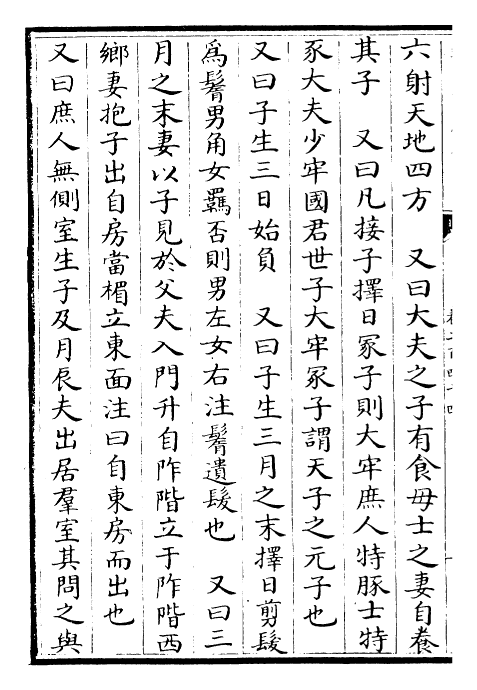 六射天地四方　又曰大夫之子有食母士之妻自養
其子　又曰凡接子擇日冢子則大牢庶人特豚士特
豕大夫少牢國君世子大牢冢子謂天子之元子也
又曰子生三日始負　又曰子生三月之末擇日剪髮
爲鬌男角女羈否則男左女右注鬌遺髮也　又曰三
月之末妻以子見於父夫入門升自阼階立于阼階西
鄉妻抱子出自房當楣立東面注曰自東房而出也
又曰庶人無側室生子及月辰夫出居羣室其問之與